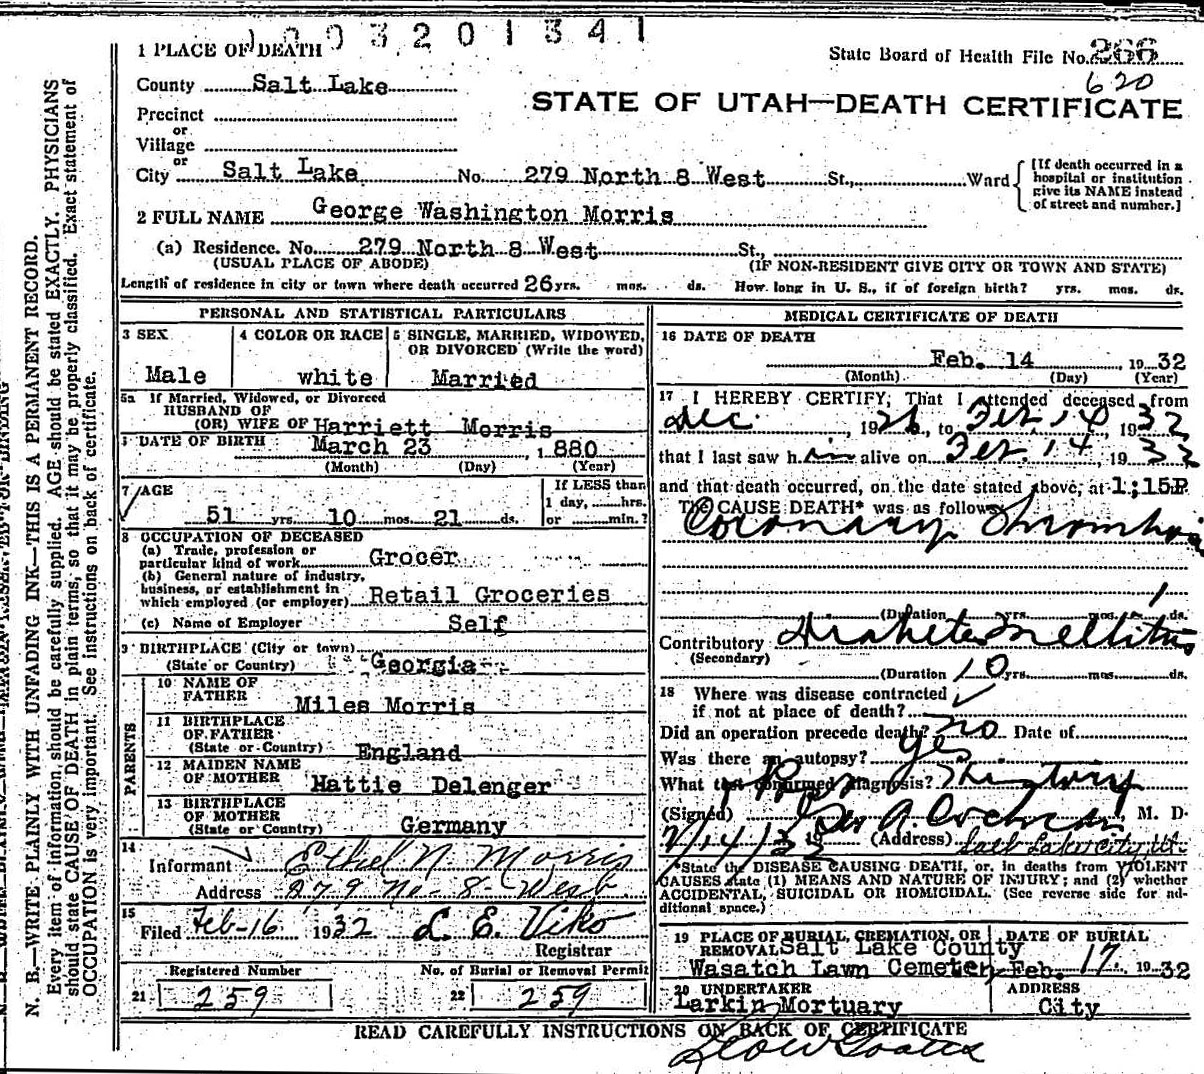 1003201341
1 PLACE OF DEATH
State Board of Health File No. 266
620
County Salt Lake
STATE OF UTAH—DEATH CERTIFICATE
Precinct
or
Village
or
City Salt Lake No. 279 North 8 West St., Ward
[If death occurred in a
hospital or institution
give its NAME instead
of street and number.]
2 FULL NAME George Washington Morris
(a) Residence. No. 279 North 8 West St.,
(USUAL PLACE OF ABODE) (IF NON-RESIDENT GIVE CITY OR TOWN AND STATE)
Length of residence in city or town where death occurred 26 yrs. mos. ds. How long in U. S., if of foreign birth? yrs. mos. ds.
PERSONAL AND STATISTICAL PARTICULARS
3 SEX
Male
4 COLOR OR RACE
white
5 SINGLE, MARRIED, WIDOWED,
OR DIVORCED (Write the word)
Married
5a If Married, Widowed, or Divorced
HUSBAND OF
(OR) WIFE OF Harriett Morris
DATE OF BIRTH March 23, 1880
(Month) (Day) (Year)
7 AGE
51 yrs. 10 mos. 21 ds.
If LESS than
1 day, hrs.
or min.?
8 OCCUPATION OF DECEASED
(a) Trade, profession or
particular kind of work Grocer
(b) General nature of industry,
business, or establishment in
which employed (or employer) Retail Groceries
(c) Name of Employer Self
9 BIRTHPLACE (City or town)
(State or Country) Georgia
PARENTS
10 NAME OF
FATHER Miles Morris
11 BIRTHPLACE
OF FATHER
(State or Country) England
12 MAIDEN NAME
OF MOTHER Hattie Delenger
13 BIRTHPLACE
OF MOTHER
(State or Country) Germany
14
Informant Ethel N. Morris
Address 279 No- 8- West
15
Filed Feb-16 1932 L. E. Viko
Registrar
Registered Number
21 259
No. of Burial or Removal Permit
22 259
MEDICAL CERTIFICATE OF DEATH
16 DATE OF DEATH
Feb. 14 1932
(Month) (Day) (Year)
17 I HEREBY CERTIFY, That I attended deceased from
Dec, 1926, to Feb 14, 1932
that I last saw him alive on Feb. 14, 1932
and that death occurred, on the date stated above, at 1:15P
THE CAUSE DEATH* was as follows
Coronary Thrombosis
(Duration yrs. mos. 1 ds.
Contributory Diabetes Mellitus
(Secondary)
(Duration 10 yrs. mos. ds.
18 Where was disease contracted
if not at place of death?
Did an operation precede death? no Date of
Was there an autopsy? yes
What test confirmed diagnosis? History
(Signed) A. Cochran, M. D.
2/14/32 19 (Address) Salt Lake City Ut.
*State the DISEASE CAUSING DEATH, or, in deaths from VIOLENT
CAUSES state (1) MEANS AND NATURE OF INJURY; and (2) whether
ACCIDENTAL, SUICIDAL OR HOMICIDAL. (See reverse side for ad-
ditional space.)
19 PLACE OF BURIAL, CREMATION, OR
REMOVAL Salt Lake County
Wasatch Lawn Cemetery
DATE OF BURIAL
Feb. 17, 1932
20 UNDERTAKER
Larkin Mortuary
ADDRESS
City
READ CAREFULLY INSTRUCTIONS ON BACK OF CERTIFICATE
N. B.—WRITE PLAINLY WITH UNFADING INK—THIS IS A PERMANENT RECORD.
Every item of information should be carefully supplied. AGE should be stated EXACTLY. PHYSICIANS
should state CAUSE OF DEATH in plain terms, so that it may be properly classified. Exact statement of
OCCUPATION is very important. See instructions on back of certificate.